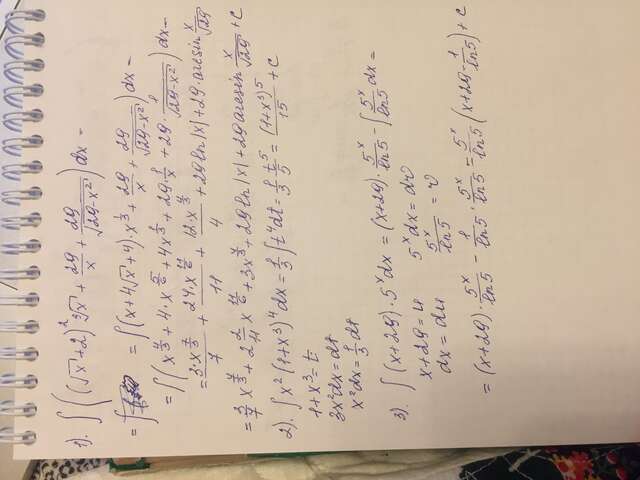 1). ∫((√x+2)² ∛x + 29/x + 29/√(29-x²))dx =
= ∫ = ∫(x+4√x+4)·x^(1/3) + 29/x + 29/√(29-x²))dx =
= ∫(x^(4/3) + 4·x^(5/6) + 4x^(1/3) + 29·1/x + 29·1/√(29-x²))dx =
= 3·x^(7/3)/7 + 24·x^(11/6)/11 + 12·x^(4/3)/4 + 29ln|x| + 29·arcsin x/√29
= 3/7 x^(7/3) + 2 2/11 x^(11/6) + 3x^(4/3) + 29ln|x| + 29arcsin x/√29 + C
2). ∫x²(1+x³)⁴dx = 1/3∫t⁴dt = 1/3 t⁵/5 = (1+x³)⁵/15 + C
1+x³=t
3x²dx=dt
x²dx=1/3 dt
3). ∫(x+29)·5ˣdx = (x+29)·5ˣ/ln5 - ∫5ˣ/ln5 dx =
x+29=u 5ˣdx=dv
dx=du 5ˣ/ln5 = v
= (x+29)·5ˣ/ln5 - 1/ln5·5ˣ/ln5 = 5ˣ/ln5(x+29-1/ln5)+C